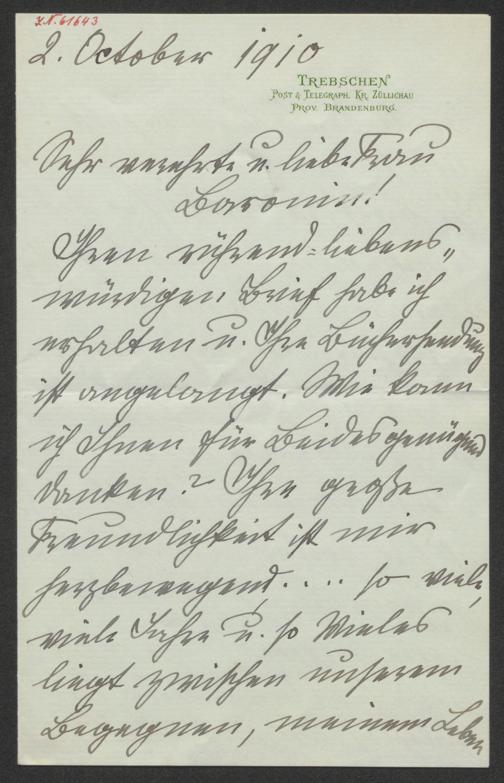 I.N. 61643
2. October 1910
TREBSCHEN
POST & TELEGRAPH. KR. ZÜLLICHAU
PROV. BRANDENBURG.
Sehr verehrte u. liebe Frau
Baronin!
Ihren rührend-liebens„
würdigen Brief habe ich
erhalten u. Ihre Büchersendung
ist angelangt. Wie kann
ich Ihnen für Beides genügend
danken? Ihre große
Freundlichkeit ist mir
herzbewegend.... so viele,
viele Jahre u. so Vieles
liegt zwischen unserem
Begegnen, meinem Leben